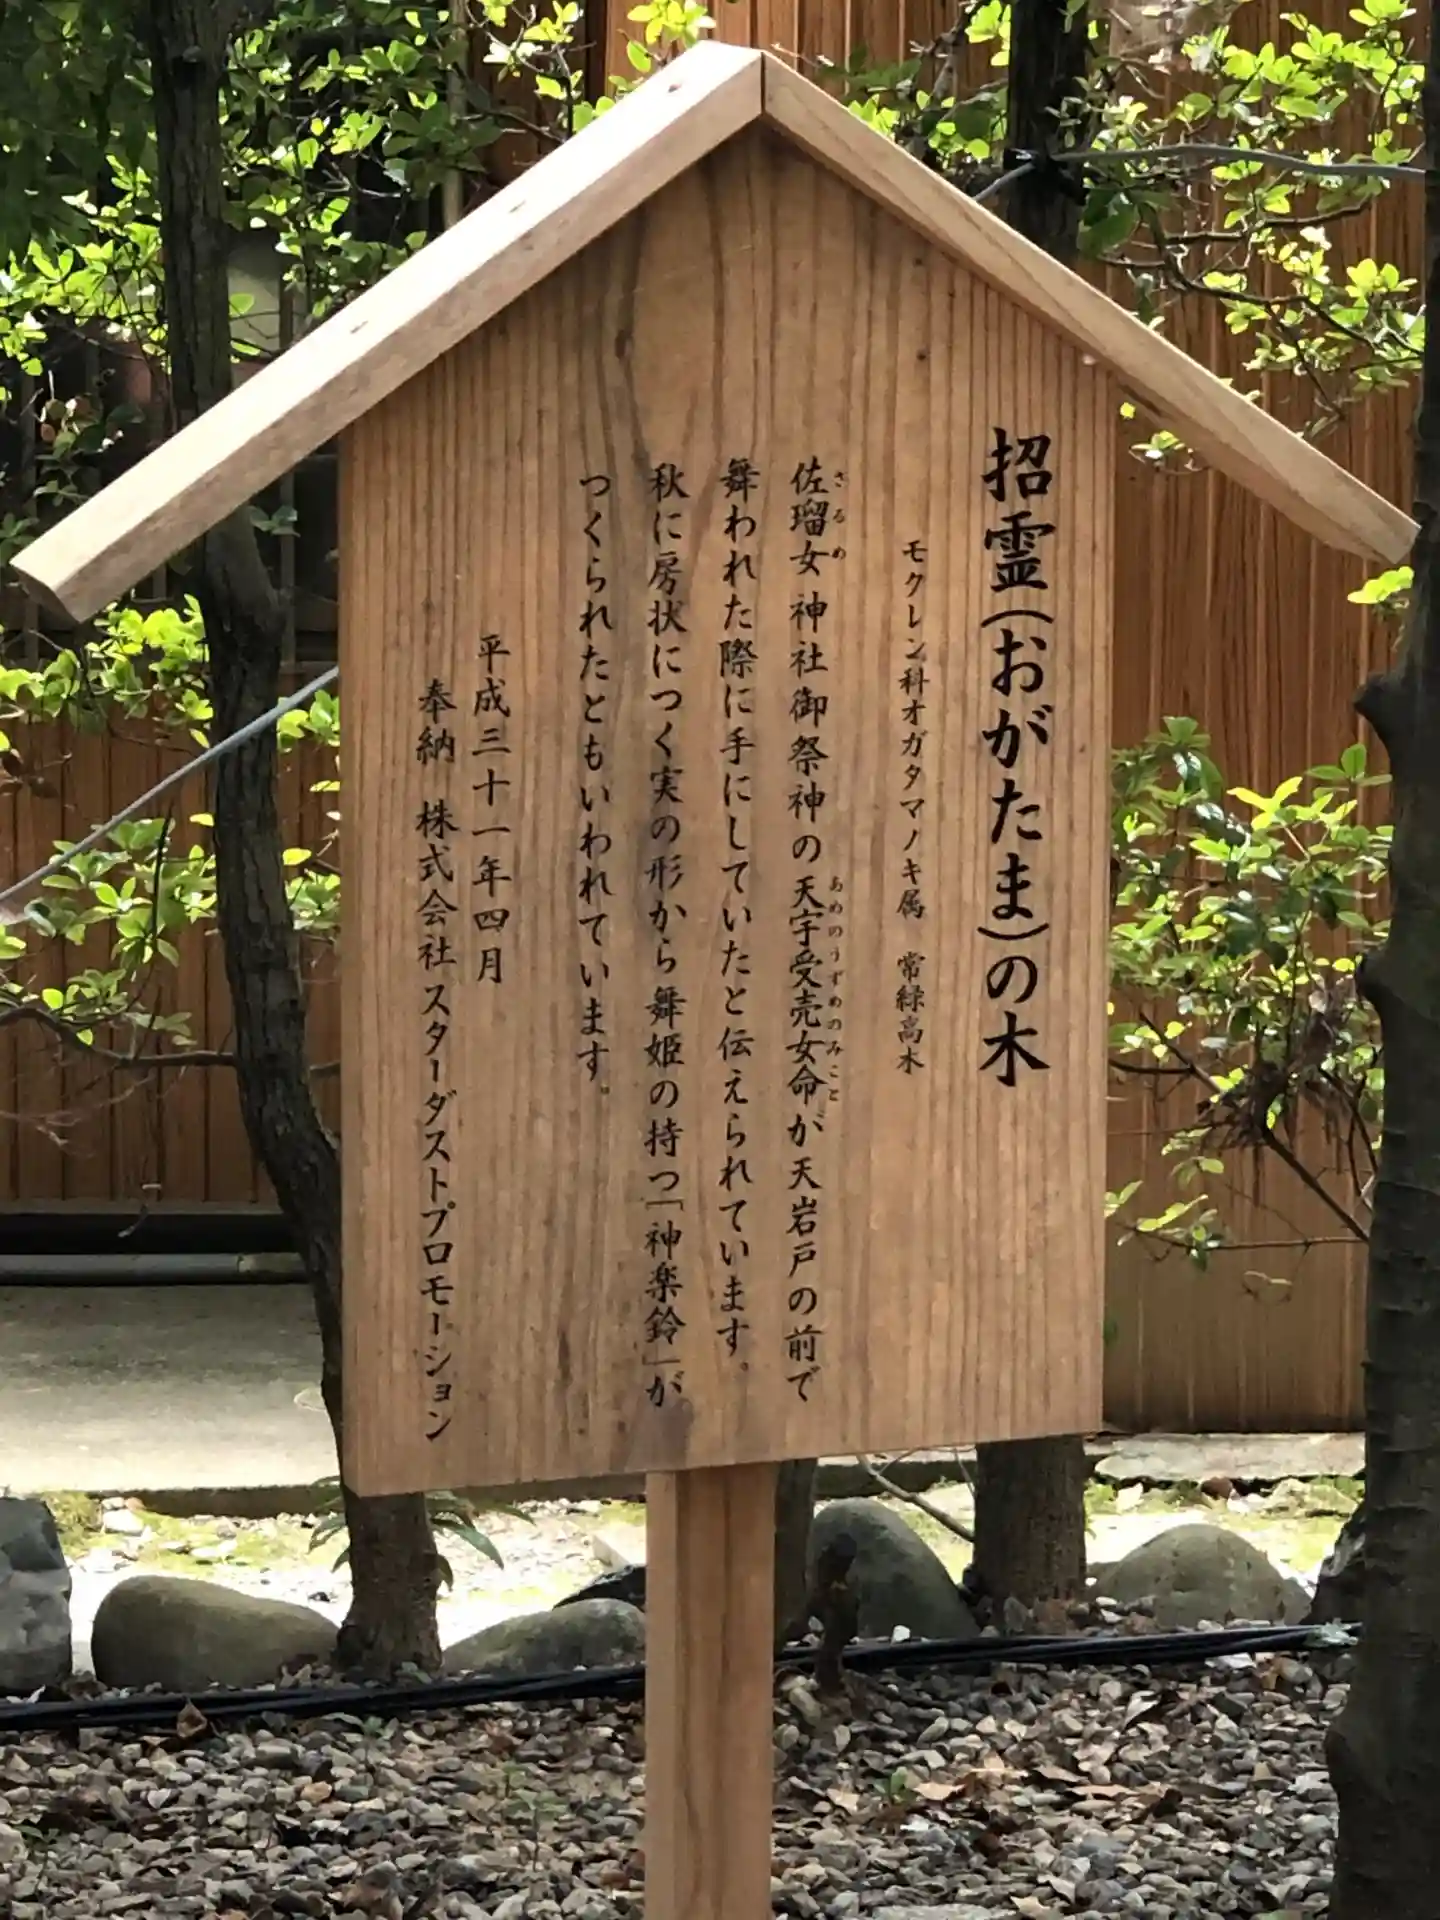 招霊(おがたま)の木
モクレン科オガタマノキ属　常緑高木
佐瑠女神社御祭神の天宇受売女命が天岩戸の前で
さるめ
あめのうずめのみこと
舞われた際に手にしていたと伝えられています。
秋に房状につく実の形から舞姫の持つ「神楽鈴」が
つくられたともいわれています。
平成三十一年四月
奉納　株式会社スターダストプロモーション